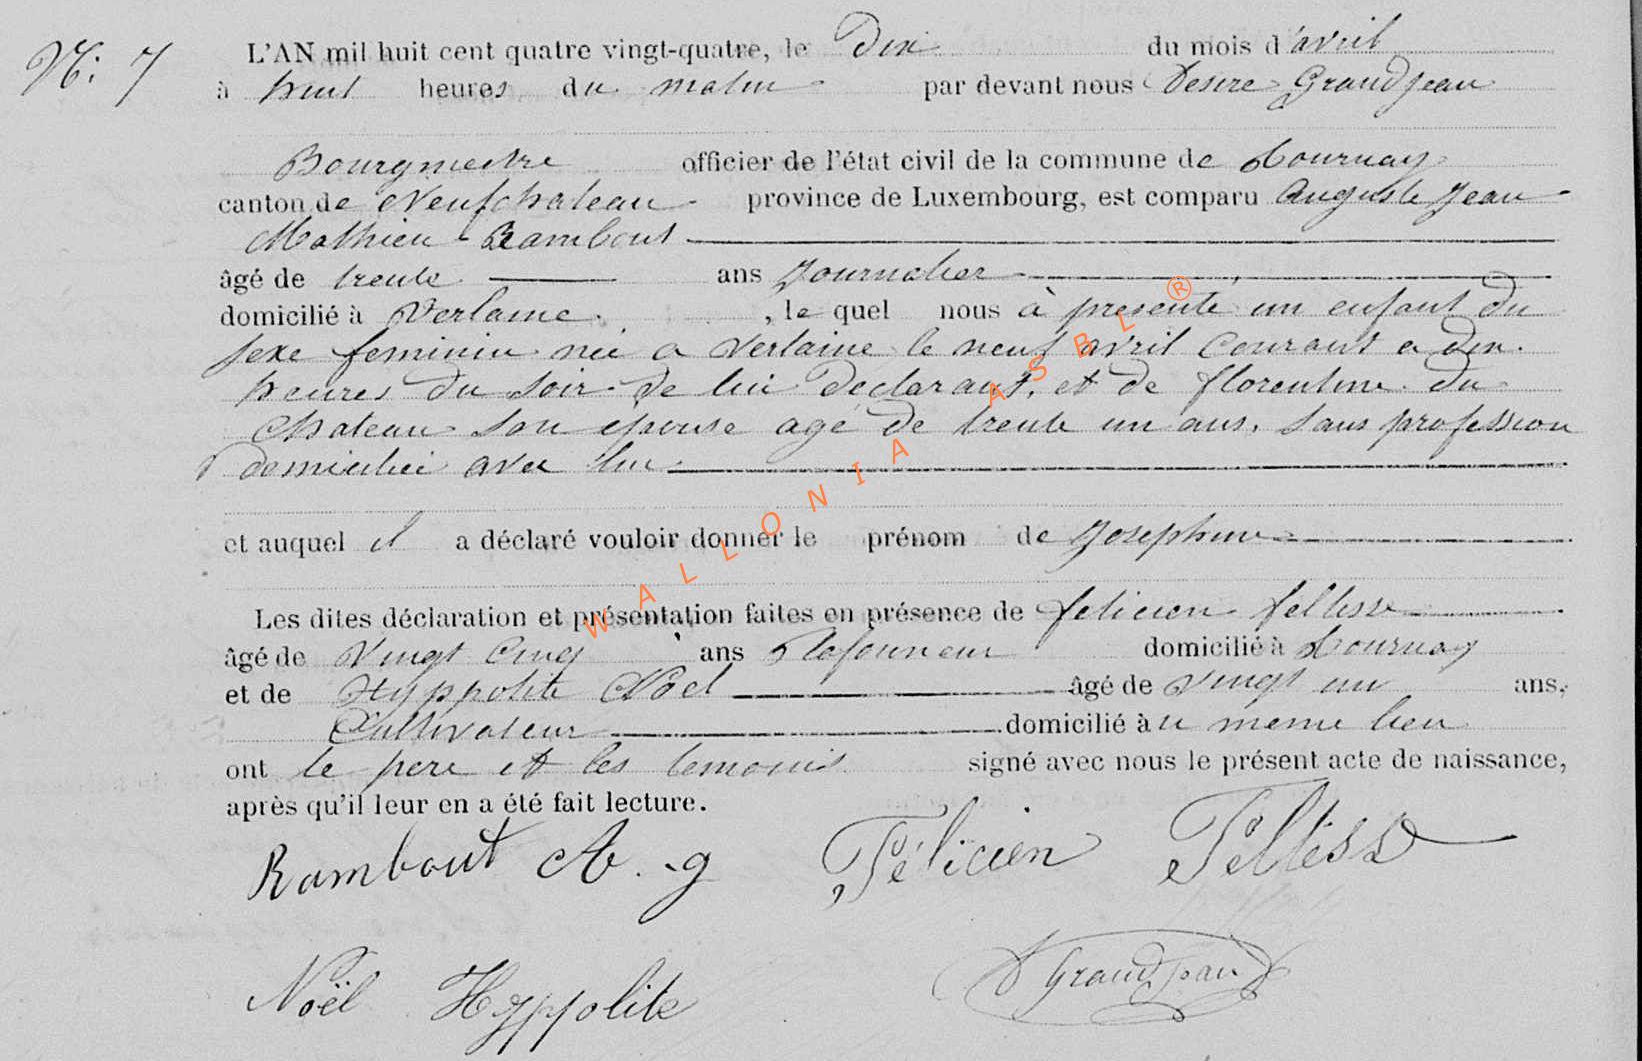 N: 7
L'AN mil huit cent quatre vingt-quatre, le Dix du mois d'avril
à huit heures du matin par devant nous Desire Grandjean
Bourgmestre officier de l'état civil de la commune de Tournay
canton de Neufchateau province de Luxembourg, est comparu Auguste Jean
Mathieu Rambout
âgé de trente ans Journalier
domicilié à Verlaine, le quel nous à presenté un enfant du
sexe feminin née a Verlaine le neuf avril courant a dix
heures du soir de lui declarant, et de florentine du
Chateau son épouse agé de trente un ans, sans profession
domiciliée avec lui
et auquel il a déclaré vouloir donner le prénom de Josephine
Les dites déclaration et présentation faites en présence de felicien feltesse
âgé de Vingt Cinq ans Plafonneur domicilié à Tournay
et de Hyppolite Noel âgé de vingt un ans,
Cultivateur domicilié à u meme lieu
ont le pere et les temoins signé avec nous le présent acte de naissance,
après qu'il leur en a été fait lecture.
Rambout A. g Félicien Feltesse
Noël Hyppolite D Grandjean
WALLONIA ASBL ®